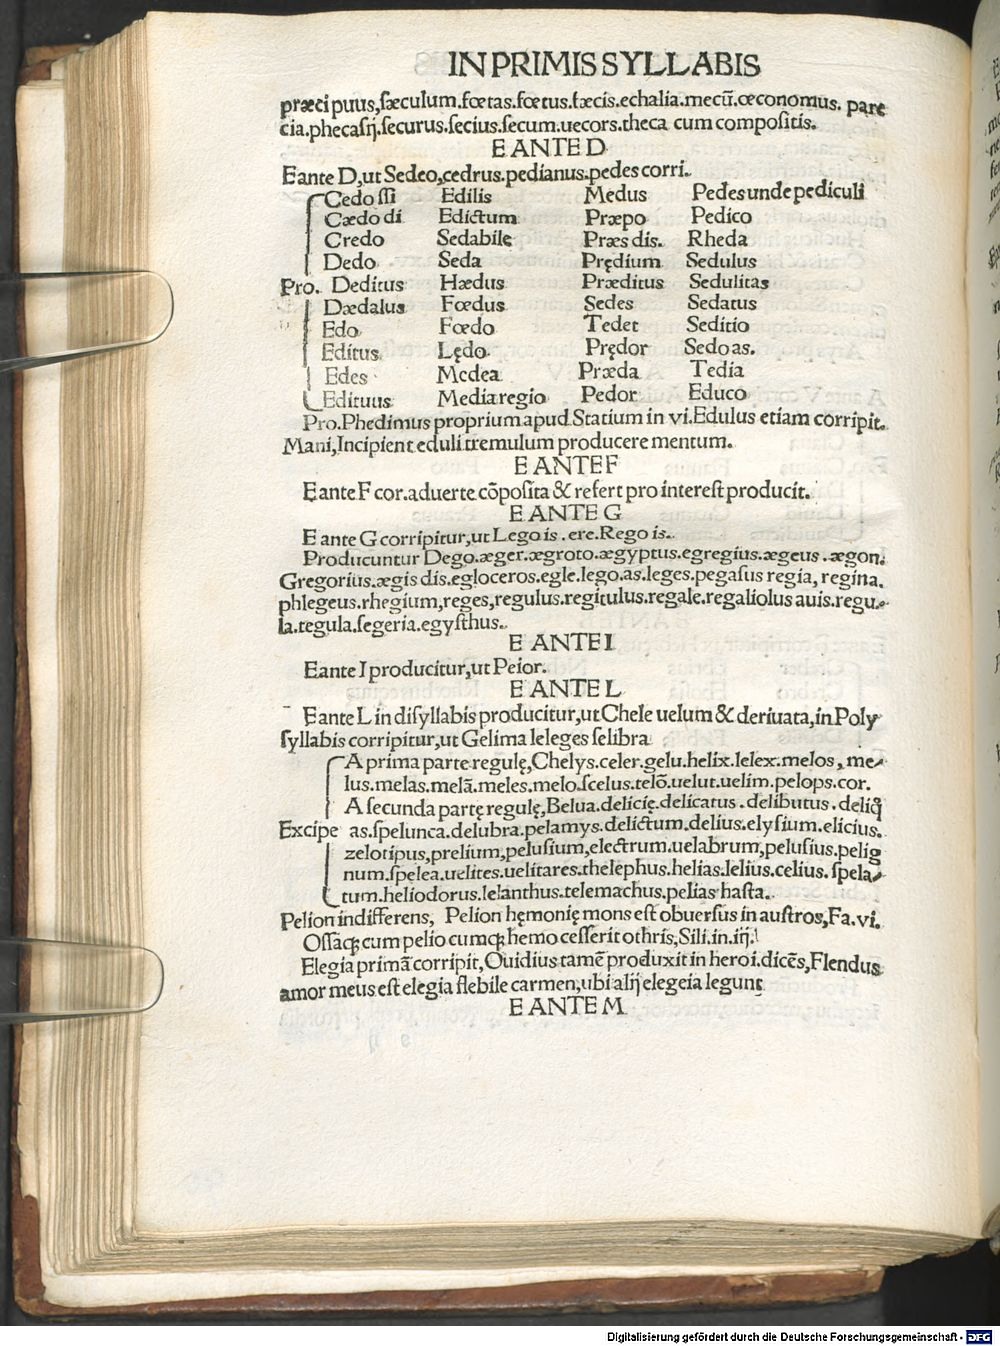 IN PRIMIS SYLLABIS
præci puus, sæculum.fœtas.fœtus.fæcis.echalia.mecū.œconomus. pare
cia.phecasij.securus.secius.secum.uecors.theca cum compositis.
E ANTE D
E ante D, ut Sedeo, cedrus.pedianus.pedes corri.
Cedo ssi Edilis Medus Pedes unde pediculi
Cædo di Edictum Præpo Pedico
Credo Sedabile Præs dis. Rheda
Dedo Seda Prędium Sedulus
Pro. Deditus Hædus Præditus Sedulitas
Dædalus Fœdus Sedes Sedatus
Edo Fœdo Tedet Seditio
Editus Lędo Prędor Sedo as.
Edes Medea Præda Tedia
Edituus Media regio Pedor Educo
Pro.Phedimus proprium apud Statium in vi.Edulus etiam corripit.
Mani, Incipient eduli tremulum producere mentum.
E ANTE F
E ante F cor.aduerte cōposita & refert pro interest producit.
E ANTE G
E ante G corripitur, ut Lego is .ere.Rego is.
Producuntur Dego.æger.ægroto.ægyptus.egregius.ægeus .ægon.
Gregorius.ægis dis.egloceros.egle.lego.as.leges.pegasus regia, regina.
phlegeus.rhegium, reges, regulus.regitulus.regale.regaliolus auis.regu
la.tegula.segeria.egysthus.
E ANTE I
E ante I producitur, ut Peior.
E ANTE L
E ante L in disyllabis producitur, ut Chele uelum & deriuata, in Poly
syllabis corripitur, ut Gelima leleges selibra
A prima parte regulę, Chelys.celer.gelu.helix.lelex.melos, me
lus.melas.melā.meles.melo.scelus.telō.uelut.uelim.pelops.cor.
A secunda partę regulę, Belua.delicię.delicatus .delibutus .deliq̃
Excipe as.spelunca.delubra.pelamys.delictum.delius.elysium.elicius.
zelotipus, prelium, pelusium, electrum.uelabrum, pelusius.pelig
num.spelea.uelites.uelitares.thelephus.helias.lelius.celius. spela
tum.heliodorus.lelanthus.telemachus.pelias hasta.
Pelion indifferens, Pelion hęmonię mons est obuersus in austros, Fa.vi.
Ossaq; cum pelio cumq; hemo cesserit othris, Sili.in.iij.
Elegia primā corripit, Ouidius tamē produxit in heroi.dicēs, Flendus
amor meus est elegia flebile carmen, ubi alij elegeia legunt
E ANTE M
Digitalisierung gefördert durch die Deutsche Forschungsgemeinschaft - DFG